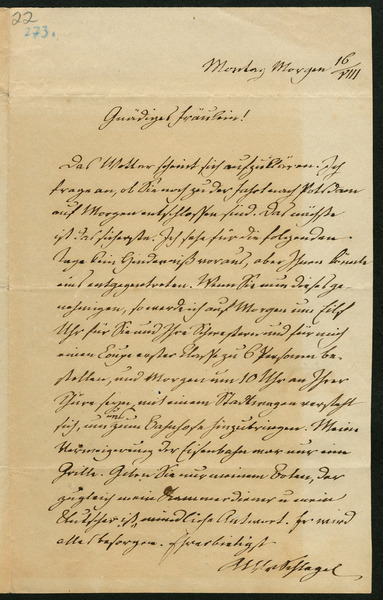 22
273.
Montag Morgen 16/VIII
Gnädiges Fräulein!
Das Wetter scheint sich aufzuklären. Ich
frage an, ob Sie noch zu der Fahrt nach Potsdam
auf Morgen entschlossen sind. Das nächste
ist das sicherste. Ich sehe für die folgenden
Tage kein Hinderniß voraus, aber Ihnen könnte
eins entgegentreten. Wenn Sie nun dieses ge-
nehmigen, so werde ich auf Morgen um Elf
Uhr für Sie und Ihre Schwestern und für mich
einen Coupé erster Classe zu 6 Personen be-
stellen, und Morgen um 10 Uhr an Ihrer
Thüre seyn, mit einem Stadtwagen versteht
sich, um uns zum Bahnhofe hinzubringen. Meine
Verweigerung der Eisenbahn war nur eine
Grille. Geben Sie nur meinem Boten, der
zugleich mein Kammerdiener u mein
Kutscher ist, mündliche Antwort. Er wird
alles besorgen. Ehrerbietigst
AWvSchlegel